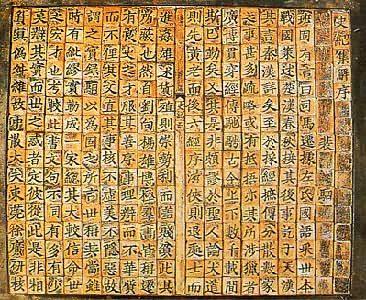 史記集解序
裴駰
班固有言曰司馬遷據左氏國語采世本
戰國策述楚漢春秋接其後事訖于天漢
其言秦漢詳矣至於採經摭傳分散數家
之事甚多疏略或有抵捂亦其所涉獵者
廣博貫穿經傳馳騁古今上下數千載間
斯已勤矣又其是非頗謬於聖人論大道
則先黃老而後六經序游俠則退處士而
進姦雄述貨殖則崇勢利而羞貧賤此其
所蔽也然自劉向楊雄博極羣書皆稱遷
有良史之才服其善序事理辯而不華質
而不俚其文直其事核不虛美不隱惡故
謂之實錄駰以為固之所言世稱其當雖
時有紕繆實勒成一家總其大較信命世
之宏才也考較此書文句不同有多有少
莫辯其實而世之惑者定彼從此是非相
貿真偽舛雜故中散大夫東莞徐廣研核